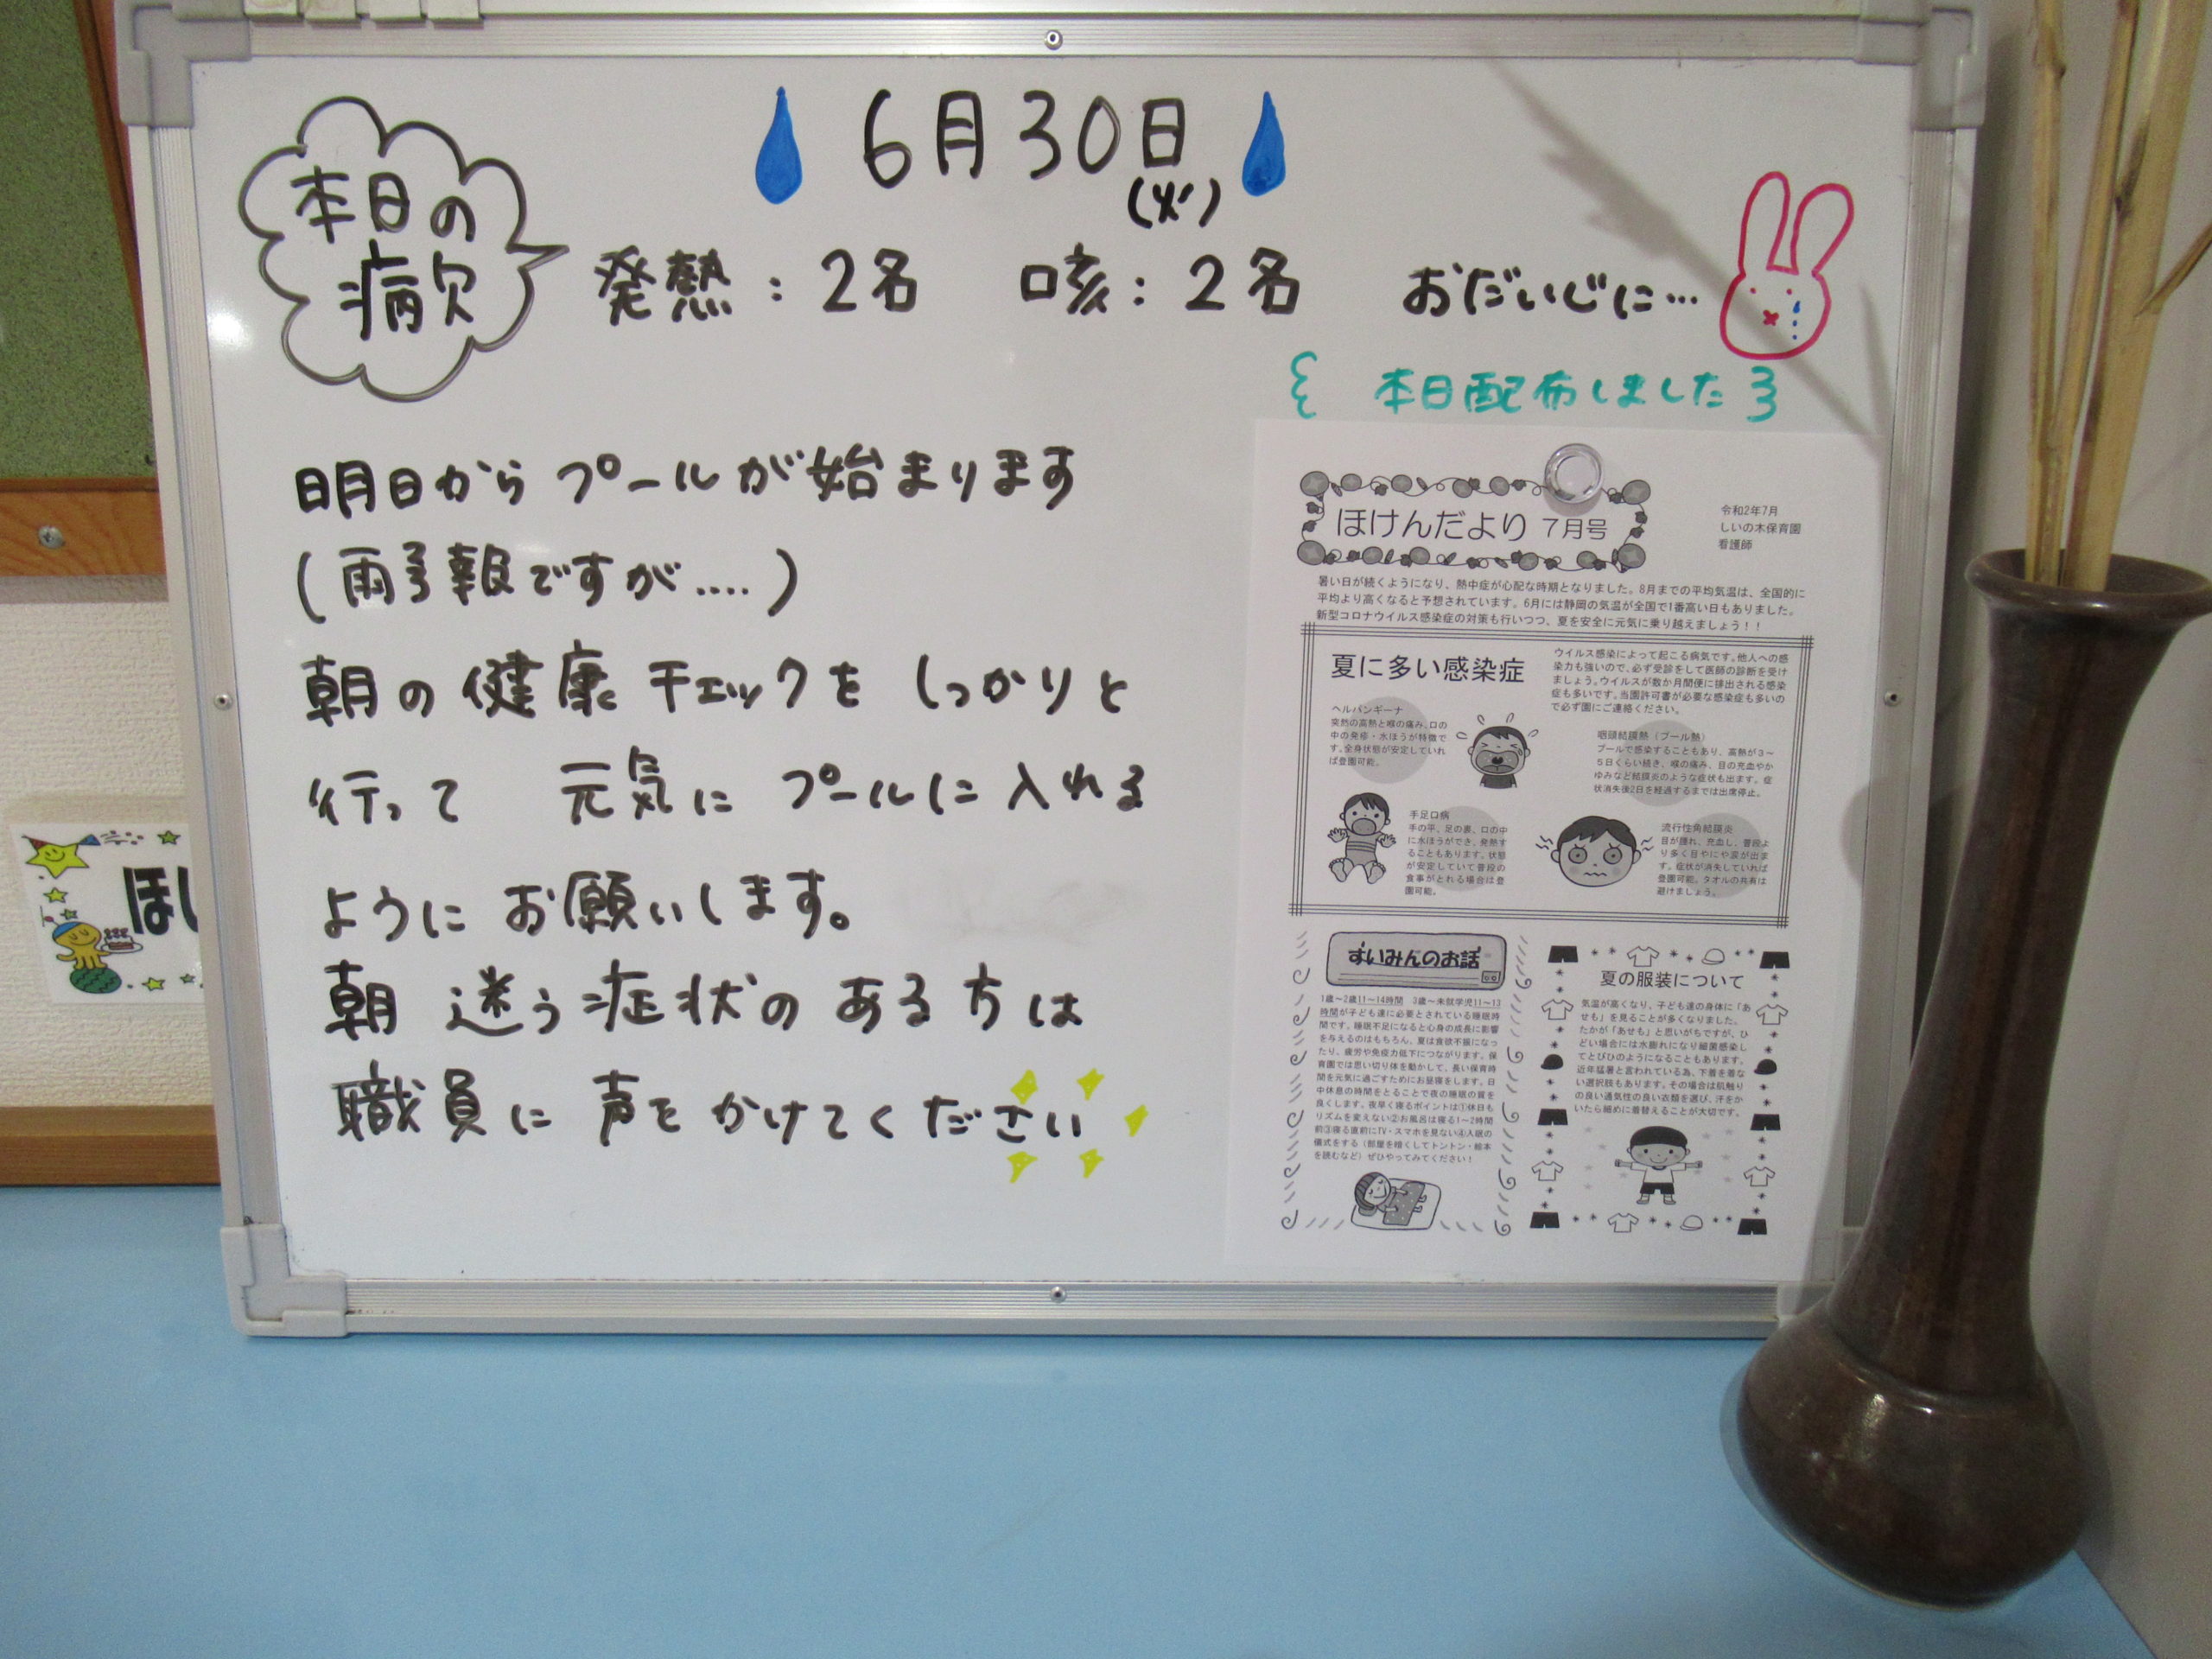 6月30日
(火)
本日の
病欠
発熱：2名　咳：2名　おだいじに…
本日配布しました
明日からプールが始まります
(雨予報ですが....)
朝の健康チェックをしっかりと
行って　元気にプールに入れる
ようにお願いします。
朝　迷う症状のある方は
職員に声をかけてください
ほけんだより 7月号
令和2年7月
しいの木保育園
看護師
暑い日が続くようになり、熱中症が心配な時期となりました。8月までの平均気温は、全国的に
平均より高くなると予想されています。6月には静岡の気温が全国で1番高い日もありました。
新型コロナウイルス感染症の対策も行いつつ、夏を安全に元気に乗り越えましょう！！
夏に多い感染症
ウイルス感染によって起こる病気です。他人への感
染力も強いので、必ず受診をして医師の診断を受け
ましょう。ウイルスが数か月間便に排出される感染
症も多いです。当園許可書が必要な感染症も多いの
で必ず園にご連絡ください。
ヘルパンギーナ
突然の高熱と喉の痛み、口の
中の発疹・水ほうが特徴で
す。全身状態が安定していれ
ば登園可能。
咽頭結膜熱（プール熱）
プールで感染することもあり、高熱が３～
５日くらい続き、喉の痛み、目の充血やか
ゆみなど結膜炎のような症状も出ます。症
状消失後2日を経過するまでは出席停止。
手足口病
手の平、足の裏、口の中
に水ほうができ、発熱す
ることもあります。状態
が安定していて普段の
食事がとれる場合は登
園可能。
流行性角結膜炎
目が腫れ、充血し、普段よ
り多く目やにや涙が出ま
す。症状が消失していれば
登園可能。タオルの共有は
避けましょう。
すいみんのお話
1歳～2歳11～14時間　3歳～未就学児11～13
時間が子ども達に必要とされている睡眠時
間です。睡眠不足になると心身の成長に影響
を与えるのはもちろん、夏は食欲不振になっ
たり、疲労や免疫力低下につながります。保
育園では思い切り体を動かして、長い保育時
間を元気に過ごすためにお昼寝をします。日
中休息の時間をとることで夜の睡眠の質を
良くします。夜早く寝るポイントは①休日も
リズムを変えない②お風呂は寝る1～2時間
前③寝る直前にTV・スマホを見ない④入眠の
儀式をする（部屋を暗くしてトントン・絵本
を読むなど）ぜひやってみてください！
夏の服装について
気温が高くなり、子ども達の身体に「あ
せも」を見ることが多くなりました。
たかが「あせも」と思いがちですが、ひ
どい場合には水膨れになり細菌感染し
てとびひのようになることもあります。
近年猛暑と言われている為、下着を着な
い選択肢もあります。その場合は肌触り
の良い通気性の良い衣類を選び、汗をか
いたら細めに着替えることが大切です。
ほし